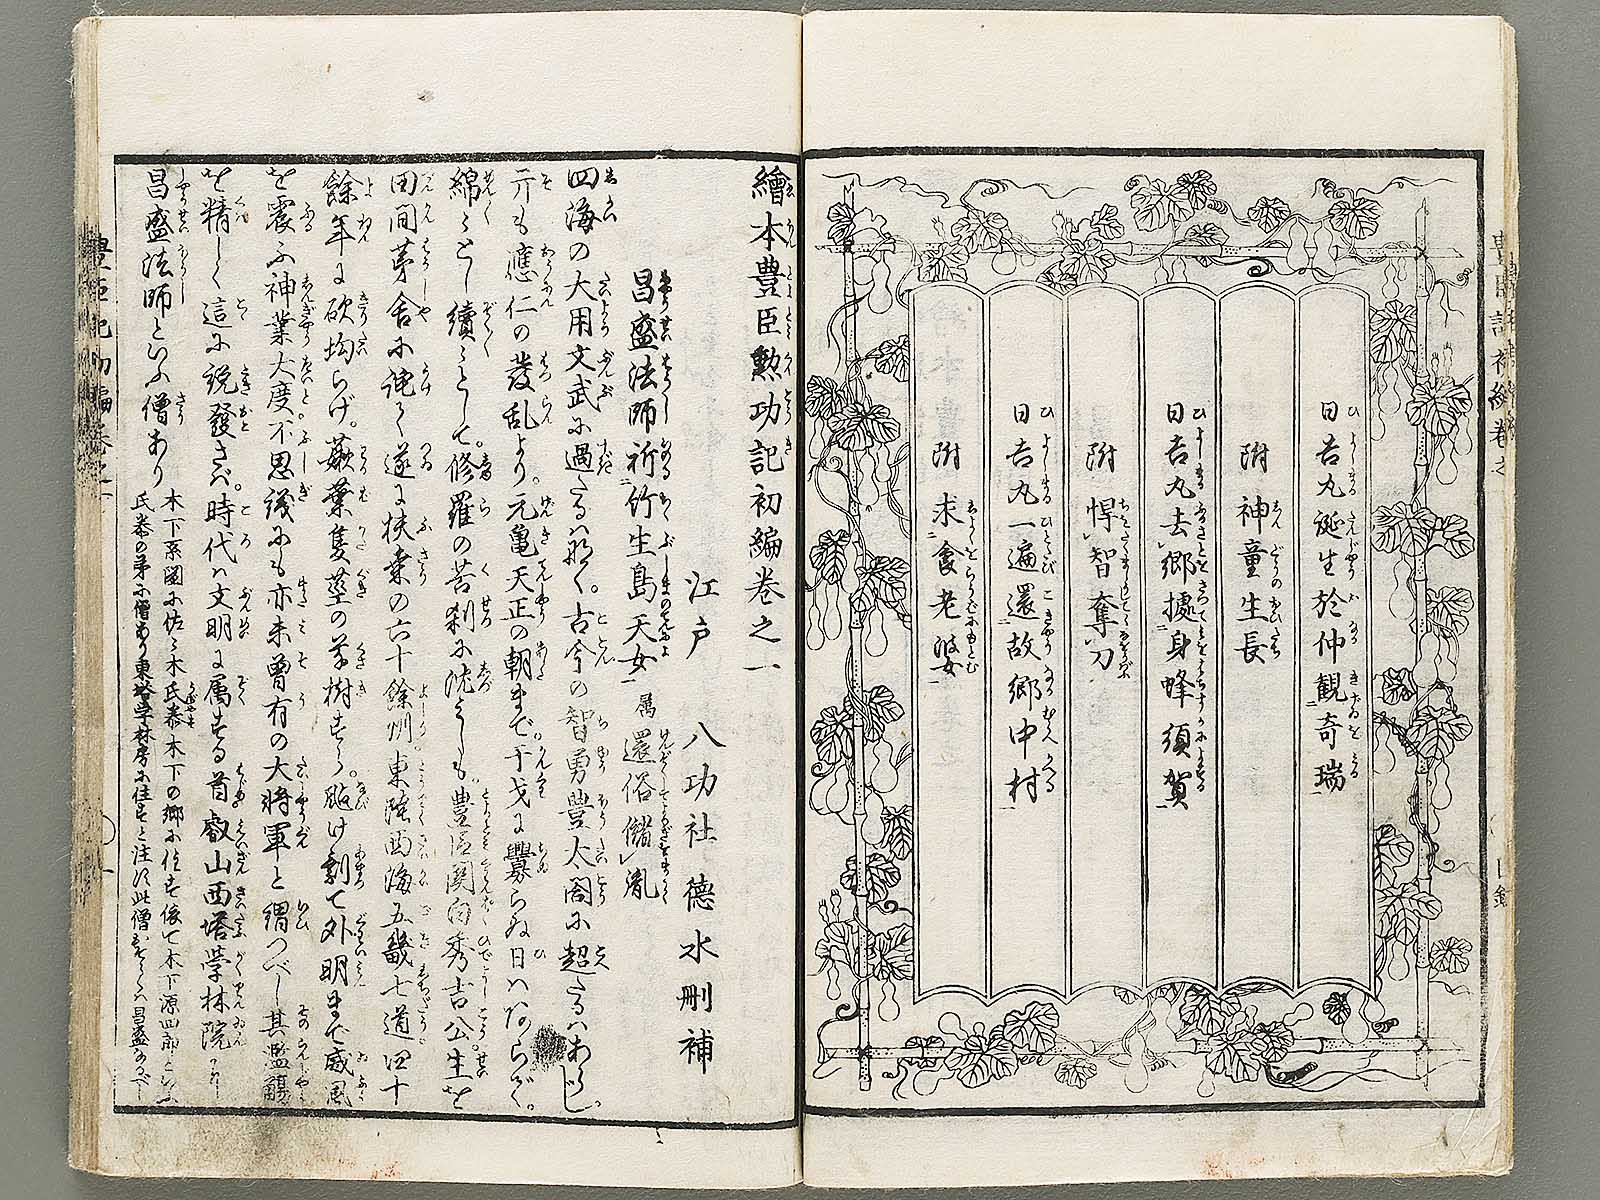 日吉丸誕生於仲観奇瑞
附 神童生長
日吉丸去郷據身蜂須賀
附 悍智奪刀
日吉丸一遍還故郷中村
附 求食老婆
繪本豊臣勲功記初編巻之一
江戸 八功社德水刪補
昌盛法師祈竹生島天女 属還俗儲胤
四海の大用文武に過たるハなく。古今の智勇豊太閤に超たるハあらじ。
亓も應仁の發乱より。元亀天正の朝まで。干戈に釁らぬ日ハあらず。
綿々とし續々として。修羅の苦刹に沈みしも。豊臣関白秀吉公生を
田間茅舎に詫て遂に扶桒の六十餘州東隂西海五畿七道四十
餘年に砍均らげ。蕨葉隻莖の草樹すら。靡け剿て外明まで威風
を震ふ神業大度不思議にも亦未曽有の大将軍と謂つべし其濫觴
を精しく這に説發さバ。時代ハ文明に属する首叡山西塔学林院
昌盛法師といふ僧あり
木下系圖に佐々木氏泰木下の郷に住す依て木下源四郎といふ
氏泰の弟に僧あり東塔学林房に住すと注す此僧おそらくハ昌盛なるべし